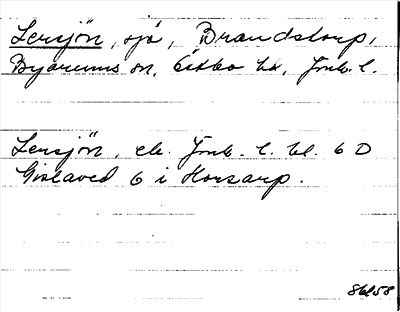 Lersjön, sjö, Brandstorp,
Byarums sn, Östbo hd, Jmk. l.
Lersjön, ek. Jmk. l. bl. 6 D
Gislaved 6 i Horsarp.
8658